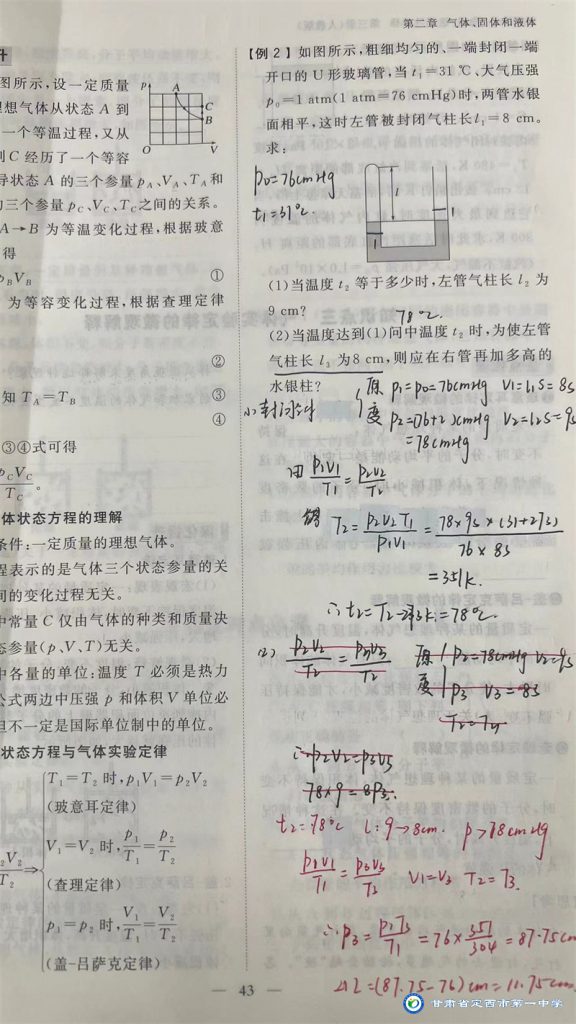 第二章 气体、固体和液体
升
图所示,设一定质量
理想气体从状态 A 到
一个等温过程,又从
到 C 经历了一个等容
导状态 A 的三个参量 pA、VA、TA 和
的三个参量 pC、VC、TC 之间的关系。
A→B 为等温变化过程,根据玻意
得
pBVB ①
为等容变化过程,根据查理定律
②
知 TA=TB ③
④
③④式可得
pCVC/TC。
体状态方程的理解
条件:一定质量的理想气体。
程表示的是气体三个状态参量的关
间的变化过程无关。
中常量 C 仅由气体的种类和质量决
态参量(p、V、T)无关。
中各量的单位:温度 T 必须是热力
公式两边中压强 p 和体积 V 单位必
但不一定是国际单位制中的单位。
状态方程与气体实验定律
p2V2/T2 ⇒
T1=T2 时,p1V1=p2V2
(玻意耳定律)
V1=V2 时,p1/T1=p2/T2
(查理定律)
p1=p2 时,V1/T1=V2/T2
(盖-吕萨克定律)
p A C B O V
【例 2】 如图所示,粗细均匀的、一端封闭一端
开口的 U 形玻璃管,当 t1=31 ℃、大气压强
p0=1 atm(1 atm=76 cmHg)时,两管水银
面相平,这时左管被封闭气柱长 l1=8 cm。
求:
p0=76cmHg
t1=31℃
l
1 1
(1)当温度 t2 等于多少时,左管气柱长 l2 为
9 cm? 78℃
(2)当温度达到(1)问中温度 t2 时,为使左管
气柱长 l3 为8 cm,则应在右管再加多高的
水银柱?
原 p1=p0=76cmHg V1=l1S=8S
变 p2=(76+2)cmHg V2=l2S=9S
=78cmHg
由 p1V1/T1=p2V2/T2
T2=p2V2T1/p1V1=78×9S×(31+273)/76×8S
=351K.
∴t2=T2-273K=78℃
(2) p2V2/T2=p3V3/T2 原 p2=78cmHg V2=9S
变 p3 V3=8S
∴p2V2=p3V3
78×9=8p3
t2=78℃ l:9→8cm. p>78cmHg
p1V1/T1=p3V3/T3 V1=V3 T2=T3.
∴p3=p1T3/T1=76×351/304=87.75cm
ΔL=(87.75-76)cm=11.75cm
43
甘肃省定西市第一中学